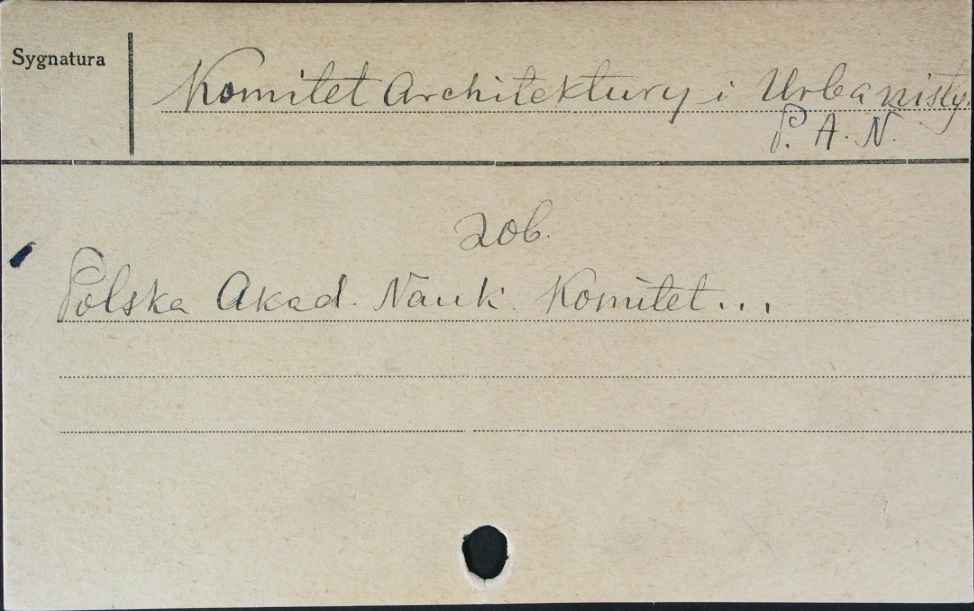 Sygnatura
Komitet Architektury i Urbanisty
P. A. N.
zob.
Polska Akad. Nauk. Komitet...